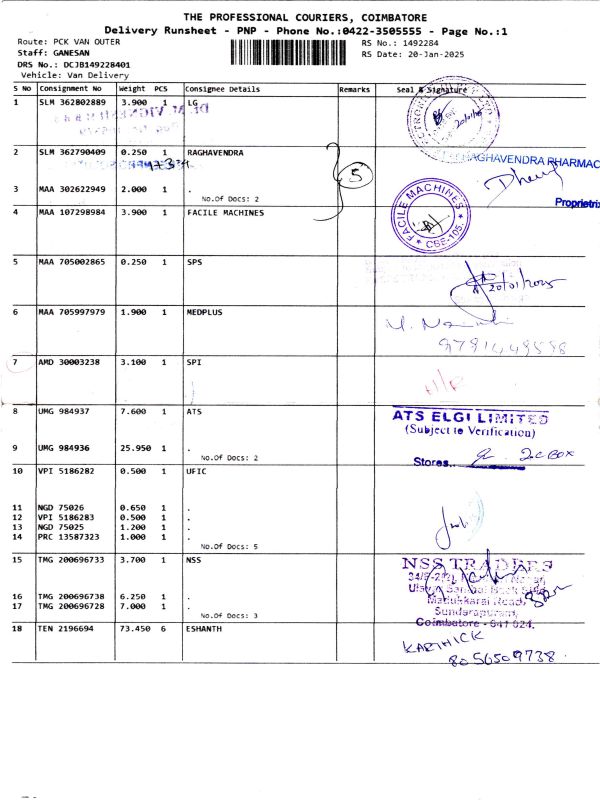 THE PROFESSIONAL COURIERS, COIMBATORE
Delivery Runsheet - PNP - Phone No.:0422-3505555 - Page No.:1
Route: PCK VAN OUTER RS No.: 1492284
Staff: GANESAN RS Date: 20-Jan-2025
DRS No.: DCJB149228401
Vehicle: Van Delivery
S No Consignment No Weight PCS Consignee Details Remarks Seal & Signature
1 SLM 362802889 3.900 1 LG
2 SLM 362790409 0.250 1 RAGHAVENDRA
RAGHAVENDRA PHARMAC
5
3 MAA 302622949 2.000 1 .
No.Of Docs: 2
Proprietrix
4 MAA 107298984 3.900 1 FACILE MACHINES
FACILE MACHINES
CBE-105.
5 MAA 705002865 0.250 1 SPS
20/01/2025
6 MAA 705997979 1.900 1 MEDPLUS
7 AMD 30003238 3.100 1 SPI
8 UMG 984937 7.600 1 ATS
ATS ELGI LIMITED
(Subject to Verification)
9 UMG 984936 25.950 1 .
No.Of Docs: 2
Stores..
10 VPI 5186282 0.500 1 UFIC
11 NGD 75026 0.650 1 .
12 VPI 5186283 0.500 1 .
13 NGD 75025 1.200 1 .
14 PRC 13587323 1.000 1 .
No.Of Docs: 5
15 TMG 200696733 3.700 1 NSS
NSS TRADERS
16 TMG 200696738 6.250 1 .
17 TMG 200696728 7.000 1 .
No.Of Docs: 3
Madukkarai Road,
Sundarapuram,
Coimbatore - 641 024.
18 TEN 2196694 73.450 6 ESHANTH
KARTHICK
8056509738